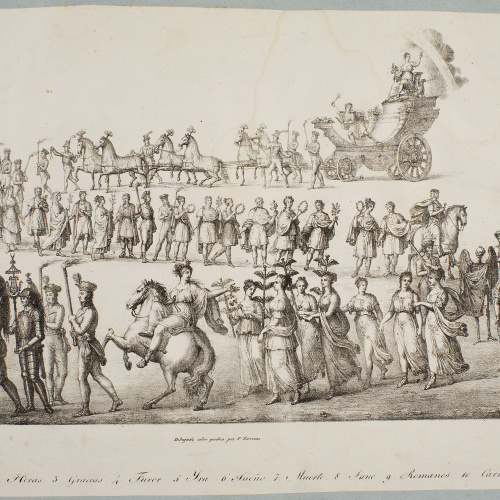 Dibujado sobre piedra por
Horas 3 Gracias 4 Furor 5 Yra 6 Sueño 7 Muerte 8 Jano 9 Romanos. 10